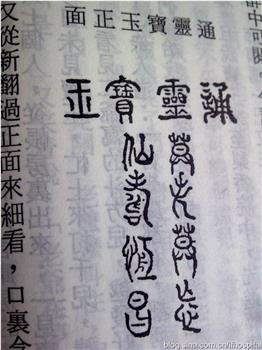 通靈寶玉正面
通靈寶玉
莫失莫忘
仙壽恆昌
又從新翻過正面來細看，口裏念